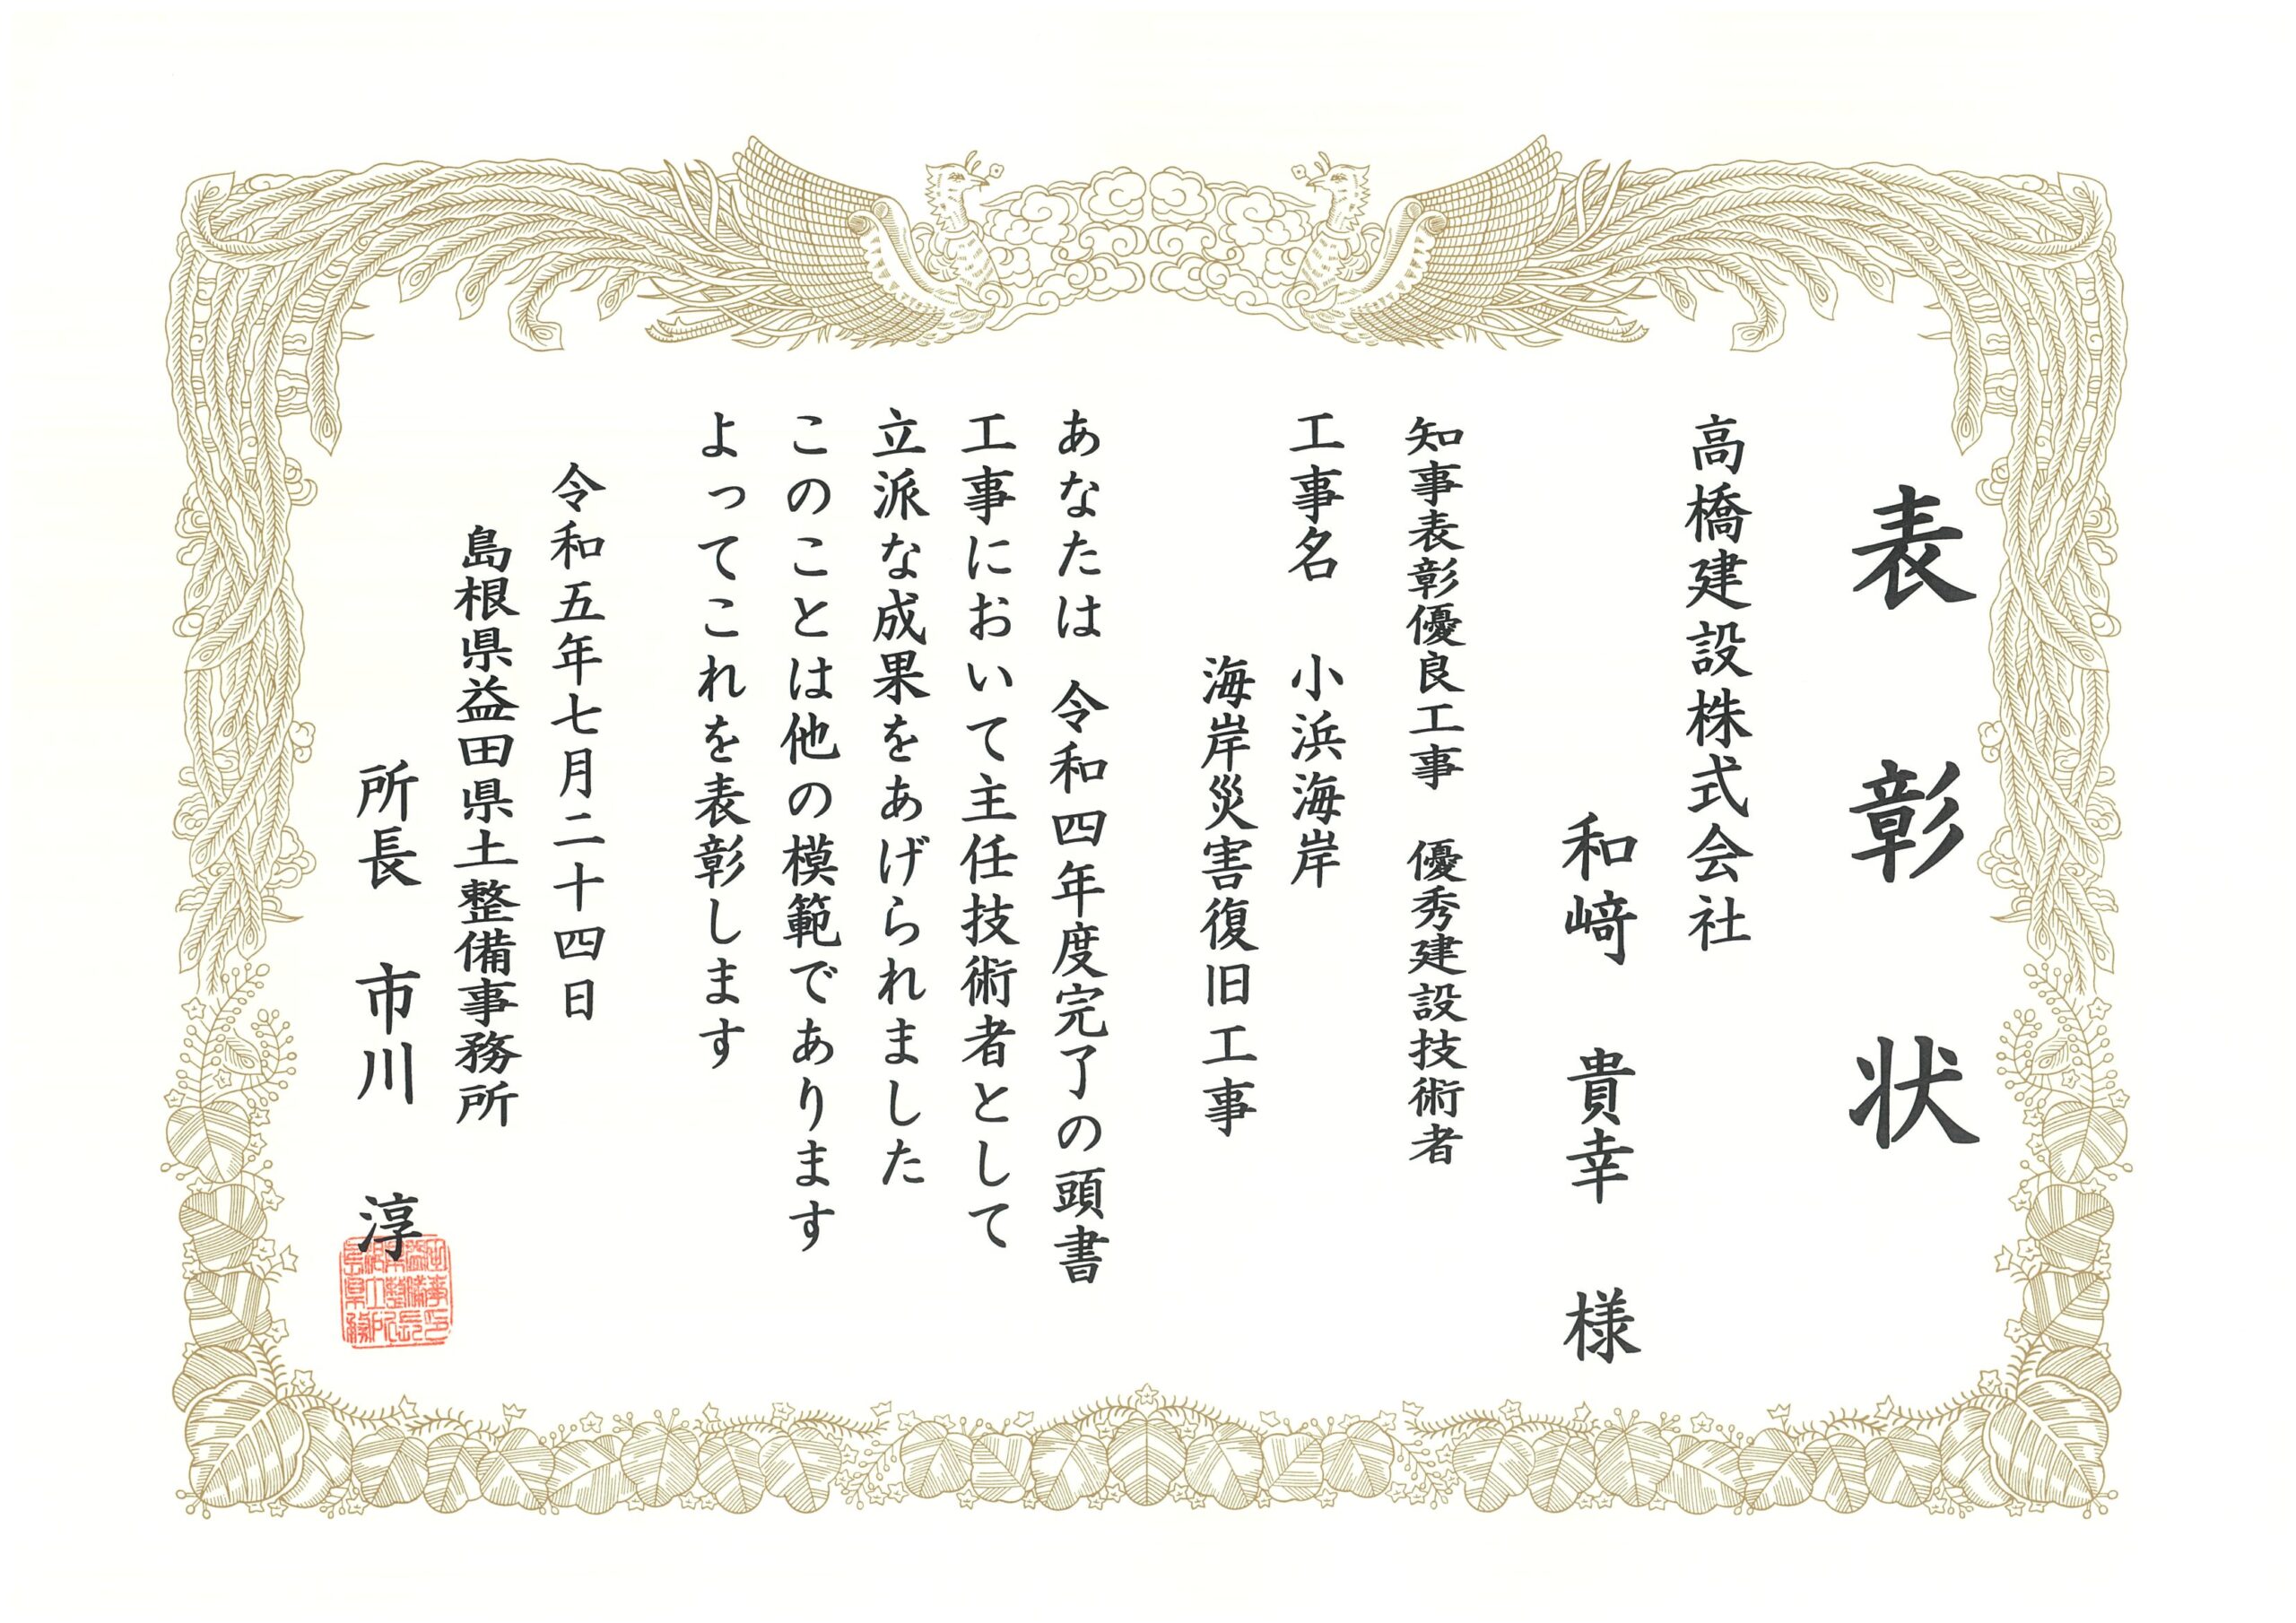 表彰状
高橋建設株式会社
和﨑 貴幸 様
知事表彰優良工事 優秀建設技術者
工事名 小浜海岸
海岸災害復旧工事
あなたは 令和四年度完了の頭書
工事において主任技術者として
立派な成果をあげられました
このことは他の模範であります
よってこれを表彰します
令和五年七月二十四日
島根県益田県土整備事務所
所長 市川 淳